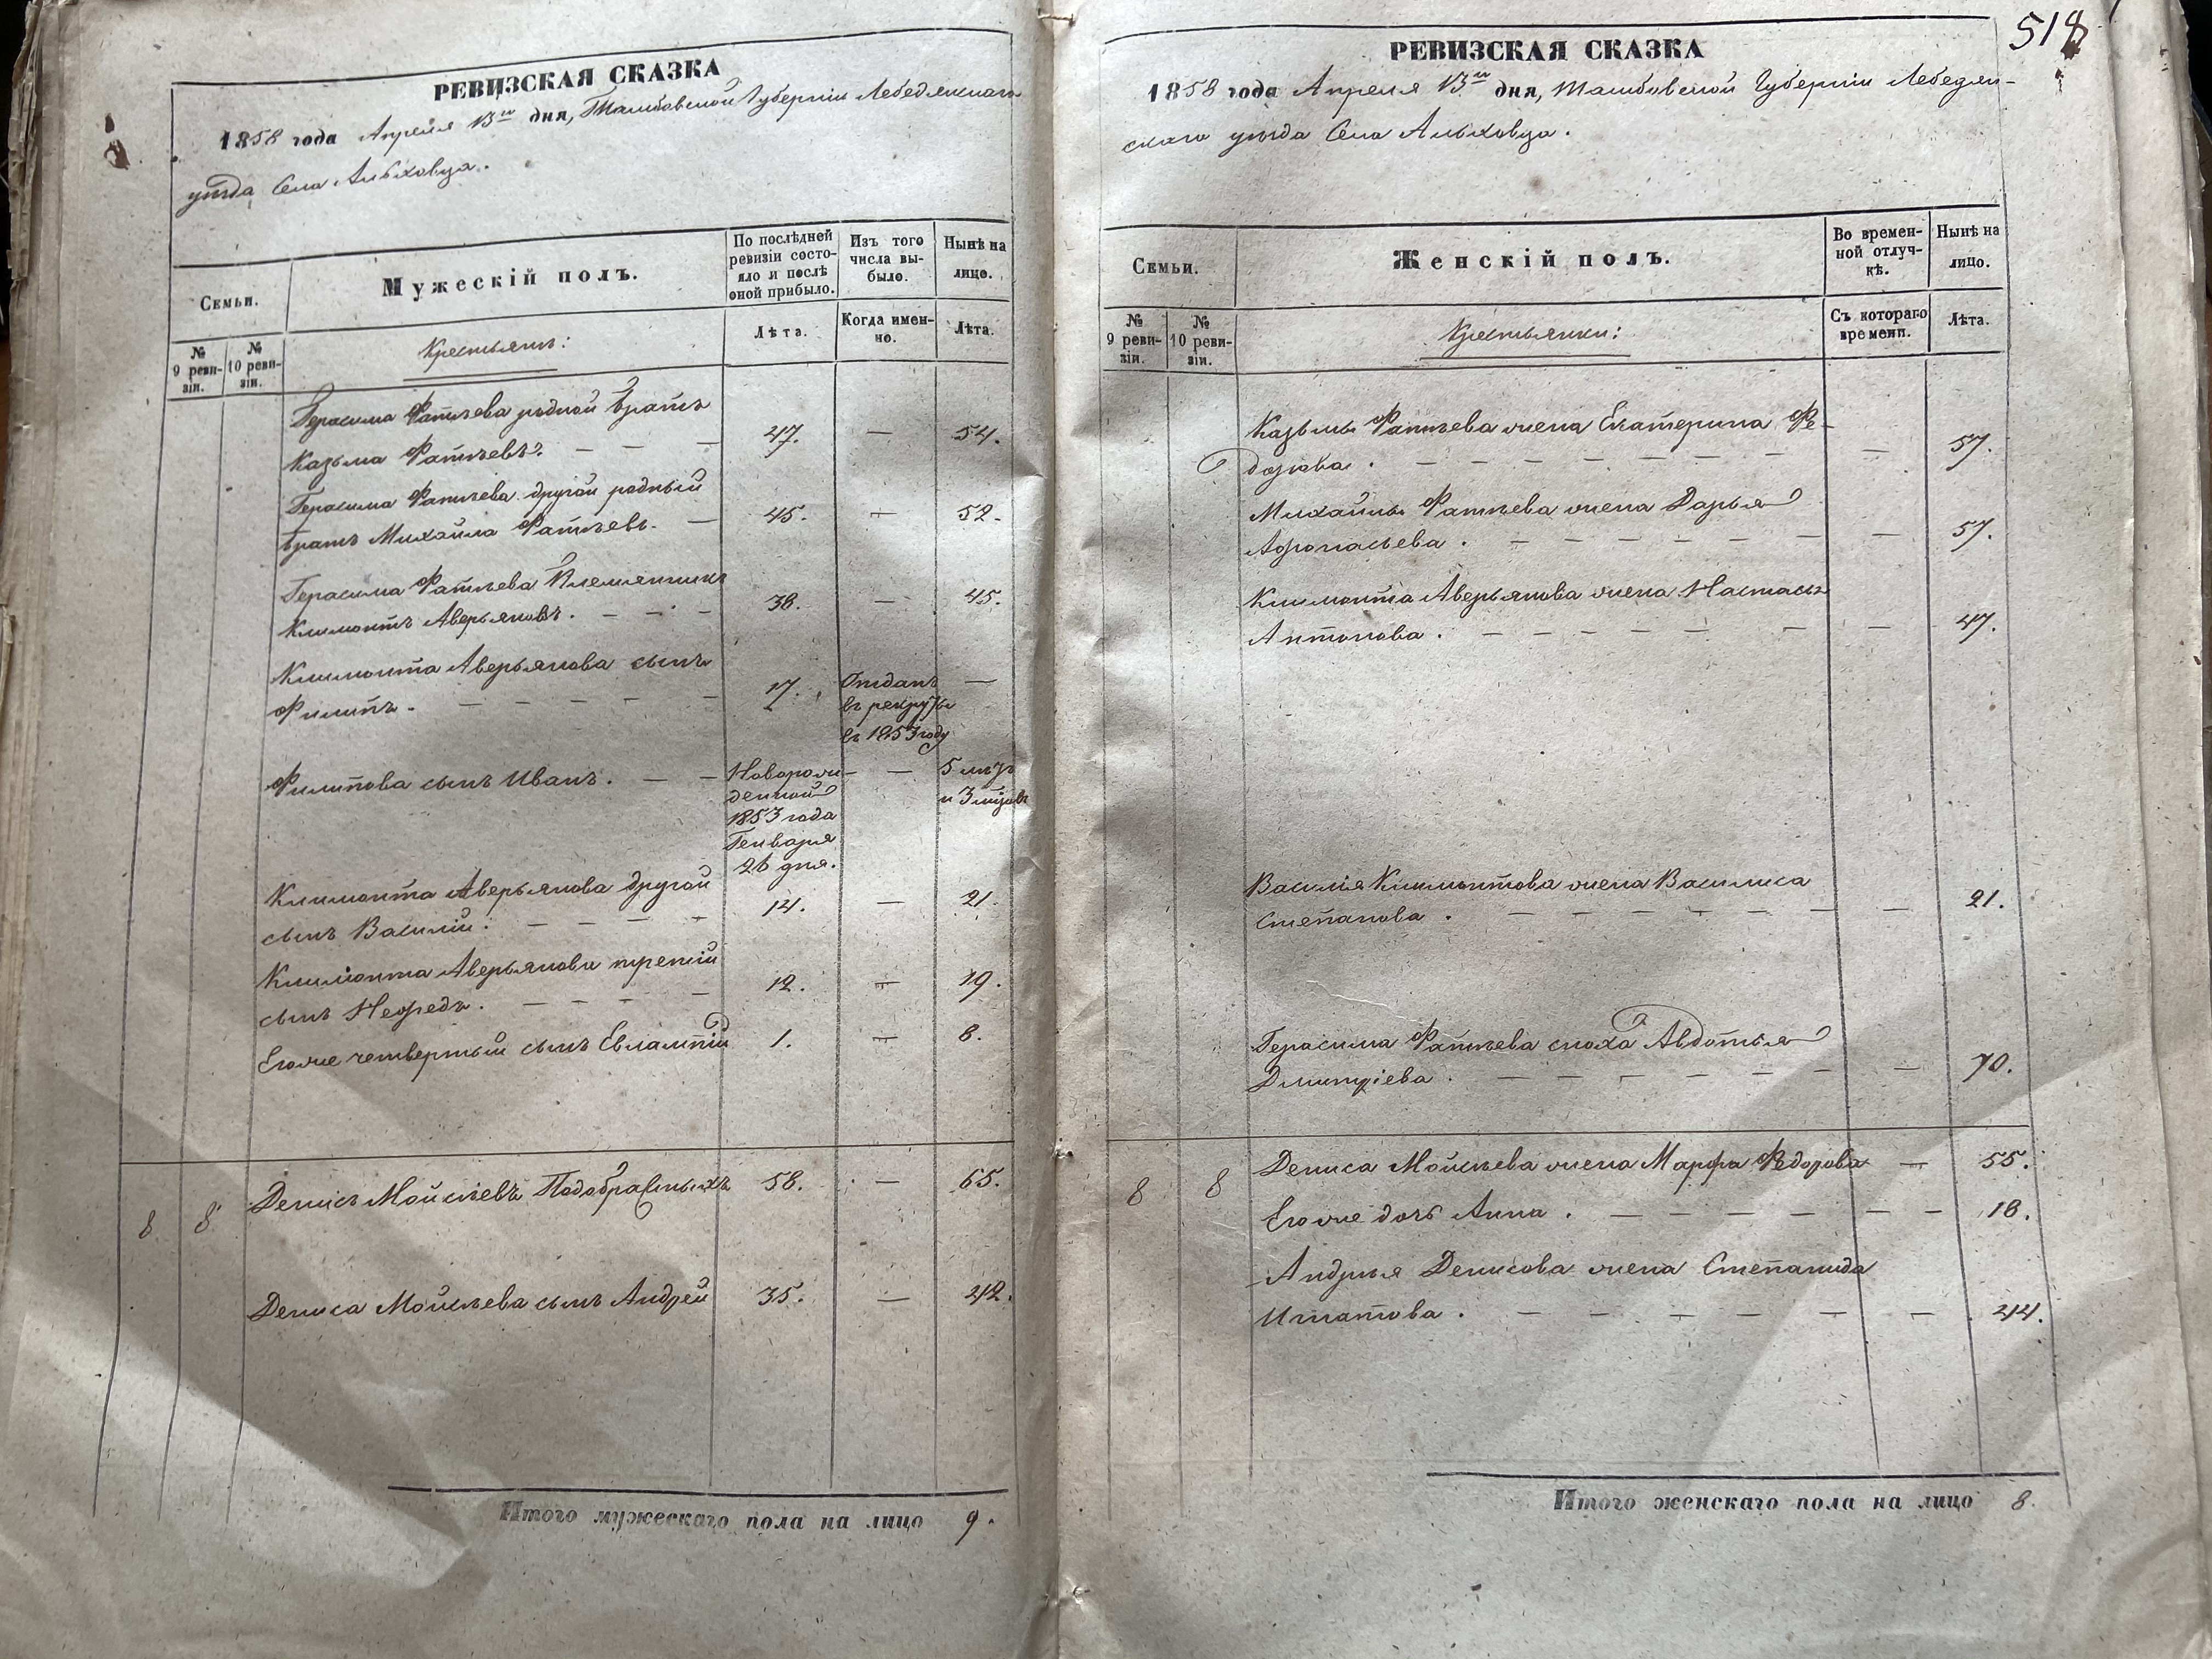 РЕВИЗСКАЯ СКАЗКА
1858 года Апреля 13го дня, Тамбовской Губерніи Лебедянскаго
уѣзда Села Альховца.
Семьи.
Мужескій полъ.
По послѣдней ревизіи состояло и послѣ оной прибыло.
Изъ того числа выбыло.
Нынѣ на лицо.
№ 9 ревизіи.
№ 10 ревизіи.
Крестьянъ:
Лѣта.
Когда именно.
Лѣта.
Герасима Фатѣева родной братъ
Казьма Фатѣевъ. — — 47. — 54.
Герасима Фатѣева другой родный
братъ Михайла Фатѣевъ. — 45. — 52.
Герасима Фатѣева Племянникъ
Климонтъ Аверьяновъ. — — — 38. — 45.
Климонта Аверьянова сынъ
Филипъ. — — — — 17. Отданъ —
въ рекруты
въ 1853 году
Филипова сынъ Иванъ. — — Новорож- — 5 лѣтъ
денной и 3 мѣсяц
1853 года
Генваря
26 дня.
Климонта Аверьянова другой
сынъ Василій. — — — — 14. — 21.
Климонта Аверьянова третій
сынъ Нефедъ. — — — — 12. — 19.
Егоже четвертый сынъ Евлампій 1. — 8.
8 8 Денисъ Мойсѣевъ Подобрасныхъ 58. — 65.
Дениса Мойсѣева сынъ Андрей 35. — 42.
Итого мужескаго пола на лицо 9.
518
РЕВИЗСКАЯ СКАЗКА
1858 года Апреля 13го дня, Тамбовской Губерніи Лебедян-
скаго уѣзда Села Альховца.
Семьи.
Женскій полъ.
Во временной отлучкѣ.
Нынѣ на лицо.
№ 9 ревизіи.
№ 10 ревизіи.
Крестьянки:
Съ котораго времени.
Лѣта.
Казьмы Фатѣева жена Екатерина Фе-
дорова. — — — — — — — — 57.
Михайлы Фатѣева жена Дарья
Афонасьева. — — — — — — — 57.
Климонта Аверьянова жена Настасья
Антонова. — — — — — — — 47.
Василія Климонтова жена Василиса
Степанова. — — — — — — — — 21.
Герасима Фатѣева сноха Авдотья
Дмитріева. — — — — — — — 70.
8 8 Дениса Мойсѣева жена Марфа Федорова — 55.
Егоже дочь Анна. — — — — — — — 18.
Андрея Денисова жена Степанида
Игнатова. — — — — — — — 44.
Итого женскаго пола на лицо 8.